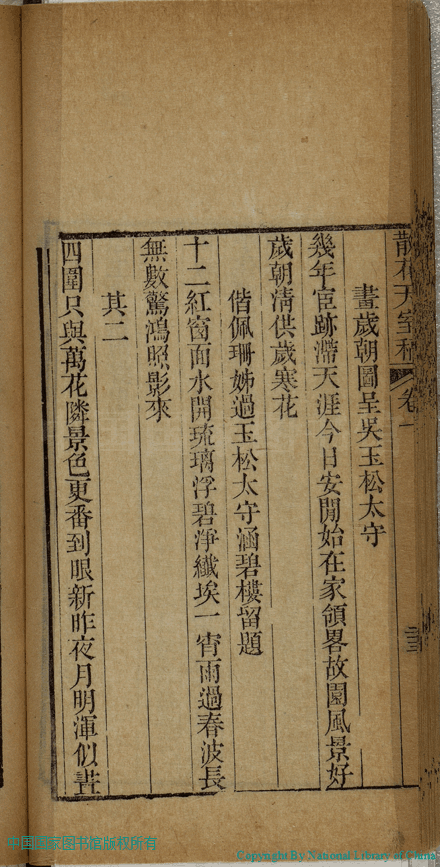 散花天室稿 卷一
畫歲朝圖呈吳玉松太守
幾年宦跡滯天涯今日安閒始在家領畧故園風景好
歲朝清供歲寒花
偕佩珊姊過玉松太守涵碧樓留題
十二紅窗面水開琉璃浮碧淨纖埃一宵雨過春波長
無數驚鴻照影來
其二
四圍只與萬花隣景色更番到眼新昨夜月明渾似晝
中国国家图书馆版权所有
Copyright By National Library of China